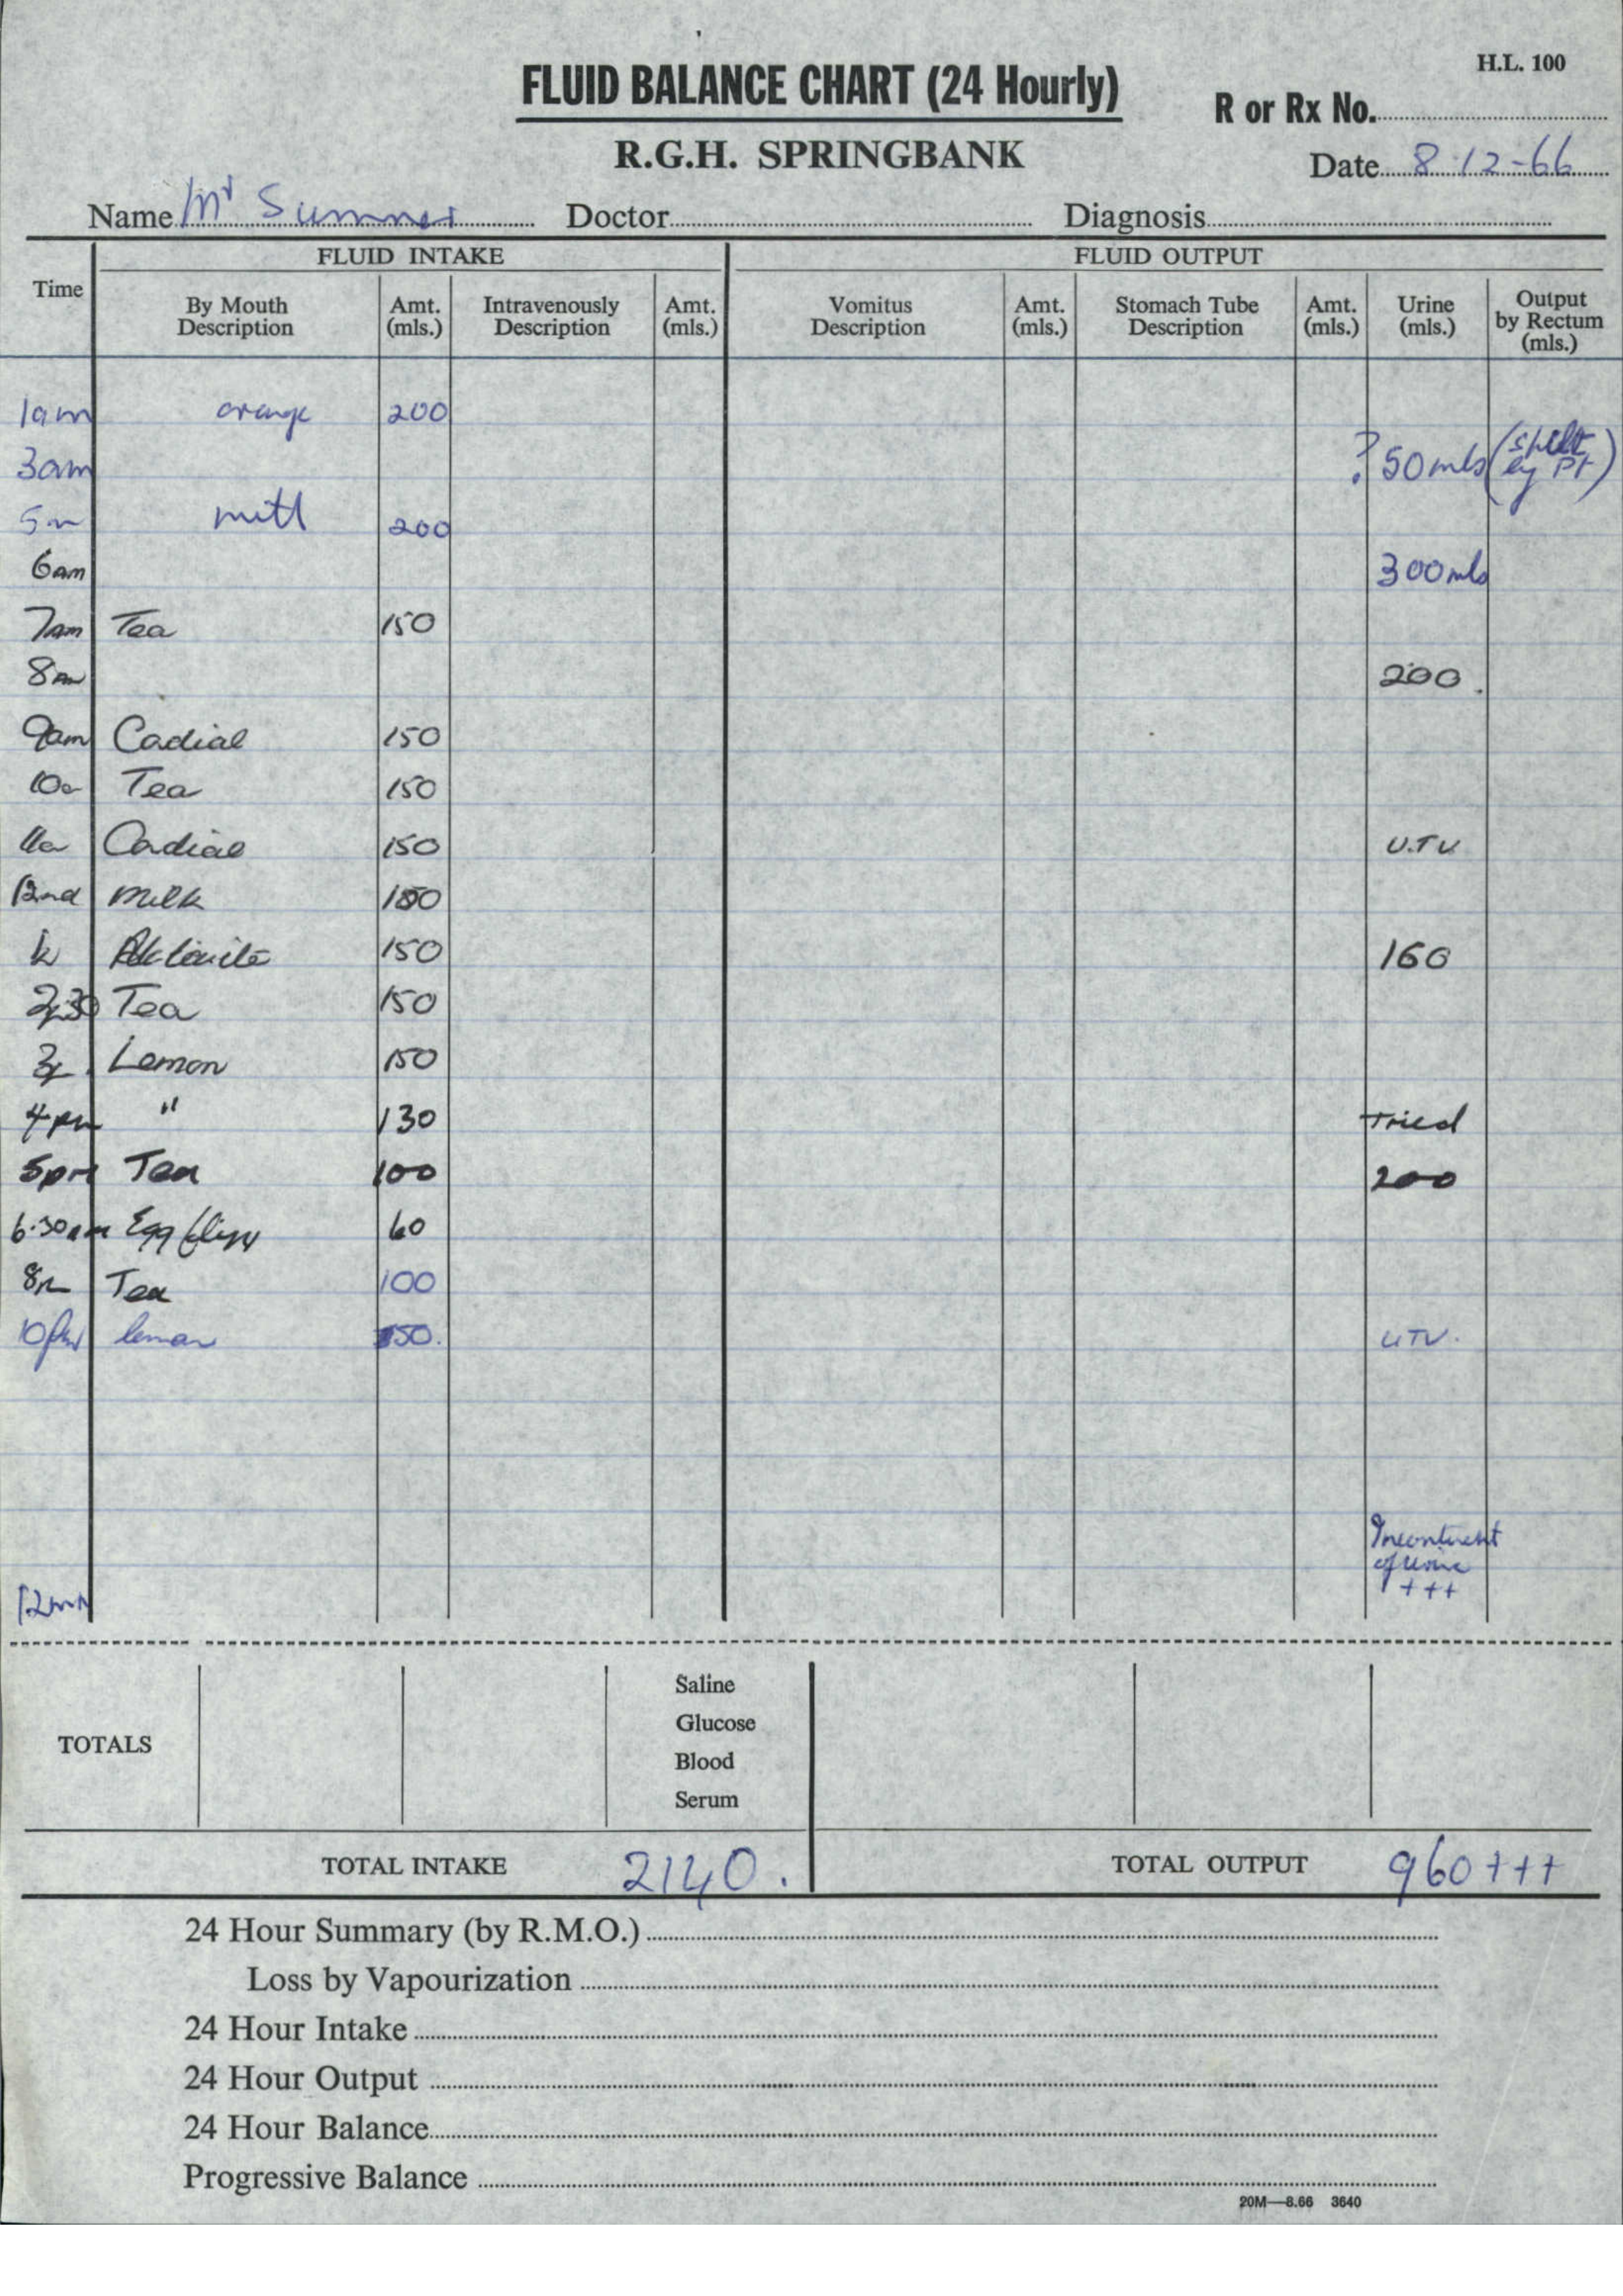 H.L. 100
FLUID BALANCE CHART (24 Hourly)
R or Rx No.
R.G.H. SPRINGBANK
Date 8.12-66
Name Mr Sumner Doctor Diagnosis
FLUID INTAKE FLUID OUTPUT
Time By Mouth Description Amt. (mls.) Intravenously Description Amt. (mls.) Vomitus Description Amt. (mls.) Stomach Tube Description Amt. (mls.) Urine (mls.) Output by Rectum (mls.)
1am orange 200
3am ? 50mls (spilt by Pt)
5 200
6am 300mls
7am Tea 150
8am 200.
9am Cadial 150
10a Tea 150
11a Cadial 150 U.T.V
12nd milk 150
150 160
2.30 Tea 150
3p Lemon 150
4pm " 130 Tried
5pm Tea 100 200
6.30 Egg flip 60
8p Tea 100
10pm lemon 50. UTV.
Incontinent
of urine
+++
12mn
TOTALS
Saline
Glucose
Blood
Serum
TOTAL INTAKE 2140. TOTAL OUTPUT 960+++
24 Hour Summary (by R.M.O.)
Loss by Vapourization
24 Hour Intake
24 Hour Output
24 Hour Balance
Progressive Balance
20M—8.66 3640